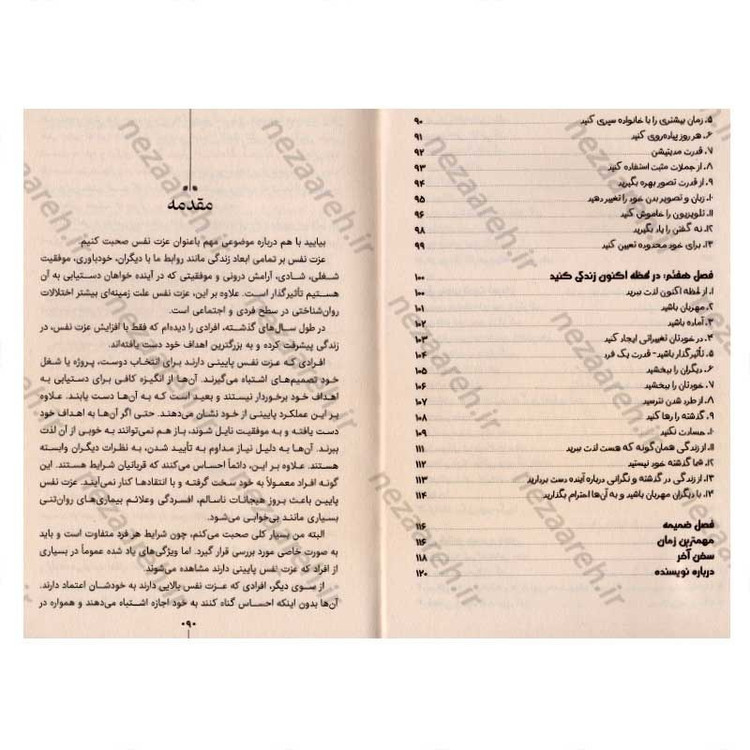 ۵. زمان بیشتری را با خانواده سپری کنید ۹۰
۶. هر روز پیاده‌روی کنید ۹۱
۷. قدرت مدیتیشن ۹۲
۸. از جملات مثبت استفاده کنید ۹۳
۹. از قدرت تصور بهره بگیرید ۹۴
۱۰. زبان و تصویر بدن خود را تغییر دهید ۹۵
۱۱. تلویزیون را خاموش کنید ۹۶
۱۲. نه گفتن را یاد بگیرید ۹۸
۱۳. برای خود محدوده تعیین کنید ۹۹
فصل هفتم: در لحظه اکنون زندگی کنید ۱۰۰
۱. از لحظه اکنون لذت ببرید ۱۰۰
۲. مهربان باشید ۱۰۱
۳. آماده باشید ۱۰۲
۴. در خودتان تغییراتی ایجاد کنید ۱۰۳
۵. تأثیرگذار باشید- قدرت یک فرد ۱۰۴
۶. دیگران را ببخشید ۱۰۵
۷. خودتان را ببخشید ۱۰۶
۸. از طرد شدن نترسید ۱۰۷
۹. گذشته را رها کنید ۱۰۸
۱۰. حسادت نکنید ۱۰۹
۱۱. از زندگی همان‌گونه که هست لذت ببرید ۱۱۱
۱۲. شما گذشته خود نیستید ۱۱۲
۱۳. از زندگی در گذشته و نگرانی درباره آینده دست بردارید ۱۱۳
۱۴. با دیگران مهربان باشید و به آن‌ها احترام بگذارید ۱۱۴
فصل ضمیمه ۱۱۶
مهمترین زمان ۱۱۶
سخن آخر ۱۱۸
درباره نویسنده ۱۲۰
مقدمه
بیایید با هم درباره موضوعی مهم باعنوان عزت نفس صحبت کنیم.
عزت نفس بر تمامی ابعاد زندگی مانند روابط ما با دیگران، خودباوری، موفقیت
شغلی، شادی، آرامش درونی و موفقیتی که در آینده خواهان دستیابی به آن
هستیم تأثیرگذار است. علاوه بر این، عزت نفس علت زمینه‌ای بیشتر اختلالات
روان‌شناختی در سطح فردی و اجتماعی است.
در طول سال‌های گذشته، افرادی را دیده‌ام که فقط با افزایش عزت نفس، در
زندگی پیشرفت کرده و به بزرگترین اهداف خود دست یافته‌اند.
افرادی که عزت نفس پایینی دارند برای انتخاب دوست، پروژه یا شغل
خود تصمیم‌های اشتباه می‌گیرند. آن‌ها از انگیزه کافی برای دستیابی به
اهداف خود برخوردار نیستند و بعید است که به آن‌ها دست یابند. علاوه
بر این عملکرد پایینی از خود نشان می‌دهند. حتی اگر آن‌ها به اهداف خود
دست یافته و به موفقیت نایل شوند، باز هم نمی‌توانند به خوبی از آن لذت
ببرند. آن‌ها به دلیل نیاز مداوم به تأیید شدن، به نظرات دیگران وابسته
هستند. علاوه بر این، دائماً احساس می‌کنند که قربانیان شرایط هستند. این
گونه افراد معمولاً به خود سخت گرفته و با انتقادها کنار نمی‌آیند. عزت نفس
پایین باعث بروز هیجانات ناسالم، افسردگی وعلائم بیماری‌های روان‌تنی
بسیاری مانند بی‌خوابی می‌شود.
البته من بسیار کلی صحبت می‌کنم، چون شرایط هر فرد متفاوت است و باید
به صورت خاصی مورد بررسی قرار گیرد. اما ویژگی‌های یاد شده عموماً در بسیاری
از افراد که عزت نفس پایینی دارند مشاهده می‌شوند.
از سوی دیگر، افرادی که عزت نفس بالایی دارند به خودشان اعتماد دارند.
آن‌ها بدون اینکه احساس گناه کنند به خود اجازه اشتباه می‌دهند و همواره در
۰۹۰
nezaareh.ir
nezaareh.ir
nezaareh.ir
nezaareh.ir
nezaareh.ir
nezaareh.ir
nezaareh.ir
nezaareh.ir